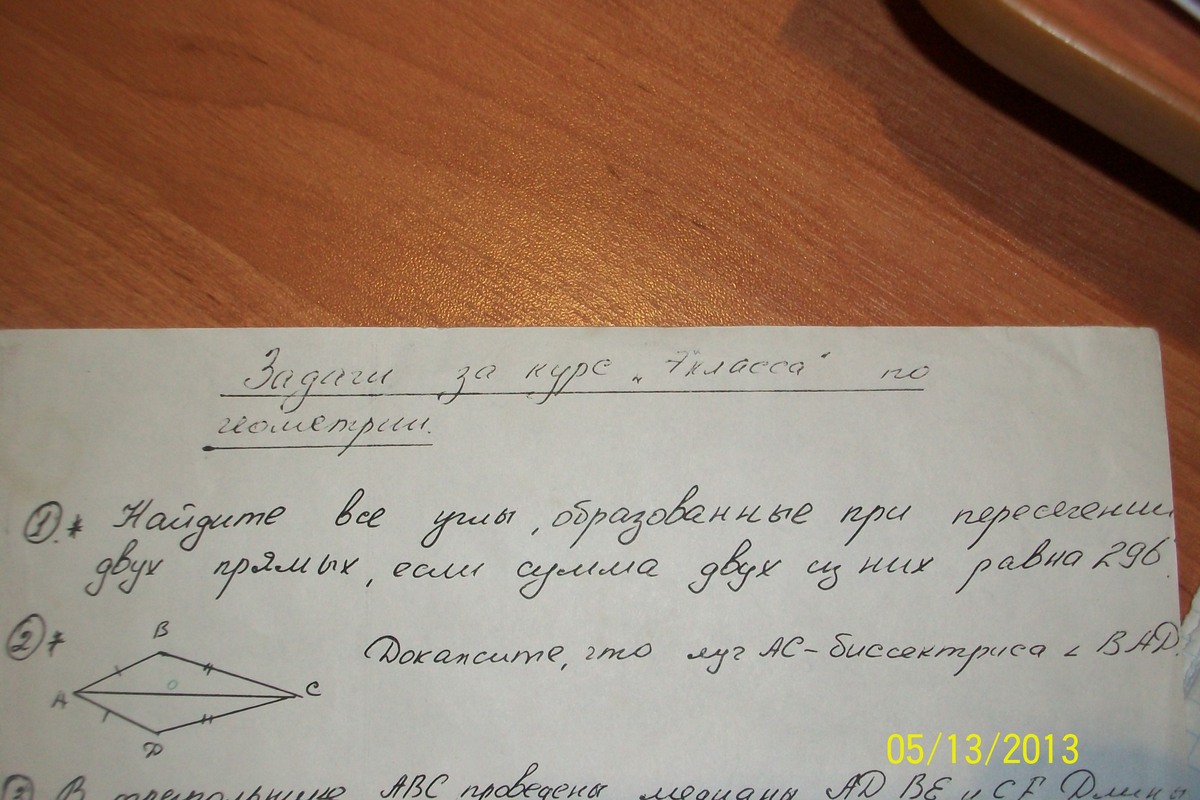 Задачи за курс „7"класса" по
геометрии.
1.* Найдите все углы, образованные при пересечении
двух прямых, если сумма двух из них равна 296.
2* Докажите, что луч AC - биссектриса ∠ BAD.
B
A
O
C
D
3 В треугольнике ABC проведены медианы AD BE и CF Длины
05/13/2013